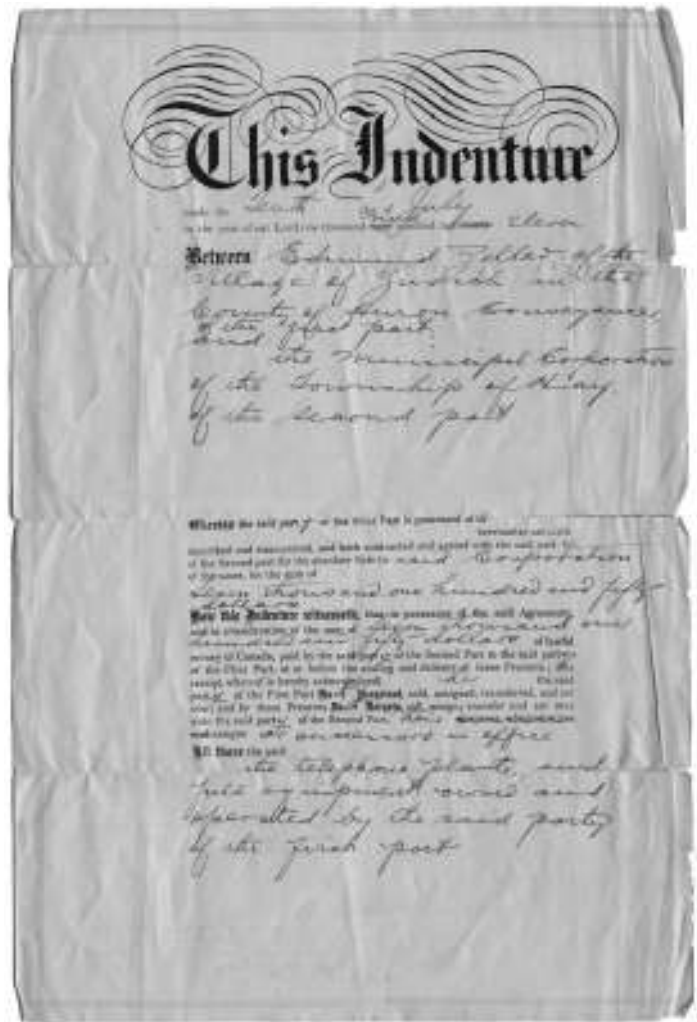 This Indenture
made the Tenth July
in the year of our Lord one thousand nine hundred and eleven
Between Edmund Zeller of the
Village of Zurich in the
County of Huron Conveyancer
of the first part
and
the Municipal Corporation
of the Township of Hay
of the second part
Whereas the said party of the First Part is possessed of the
hereinafter
described and enumerated, and hath contracted and agreed with the said party
of the Second part for the absolute Sale to said Corporation
of the same, for the sum of
thousand one hundred and fifty
dollars
Now this Indenture witnesseth, that in pursuance of the said Agreement,
and in consideration of the sum of thousand one
hundred and fifty dollars of lawful
money of Canada, paid by the said party of the Second Part to the said party
of the First Part, at or before the sealing and delivery of these Presents, (the
receipt whereof is hereby acknowledged) he the said
party of the First Part Hath Bargained, sold, assigned, transferred, and set
over, and by these Presents Doth Bargain, sell, assign, transfer and set over
unto the said party of the Second Part,
successors in office
All those the said
the telephone plants, and
equipment owned and
operated by the said party
of the first part